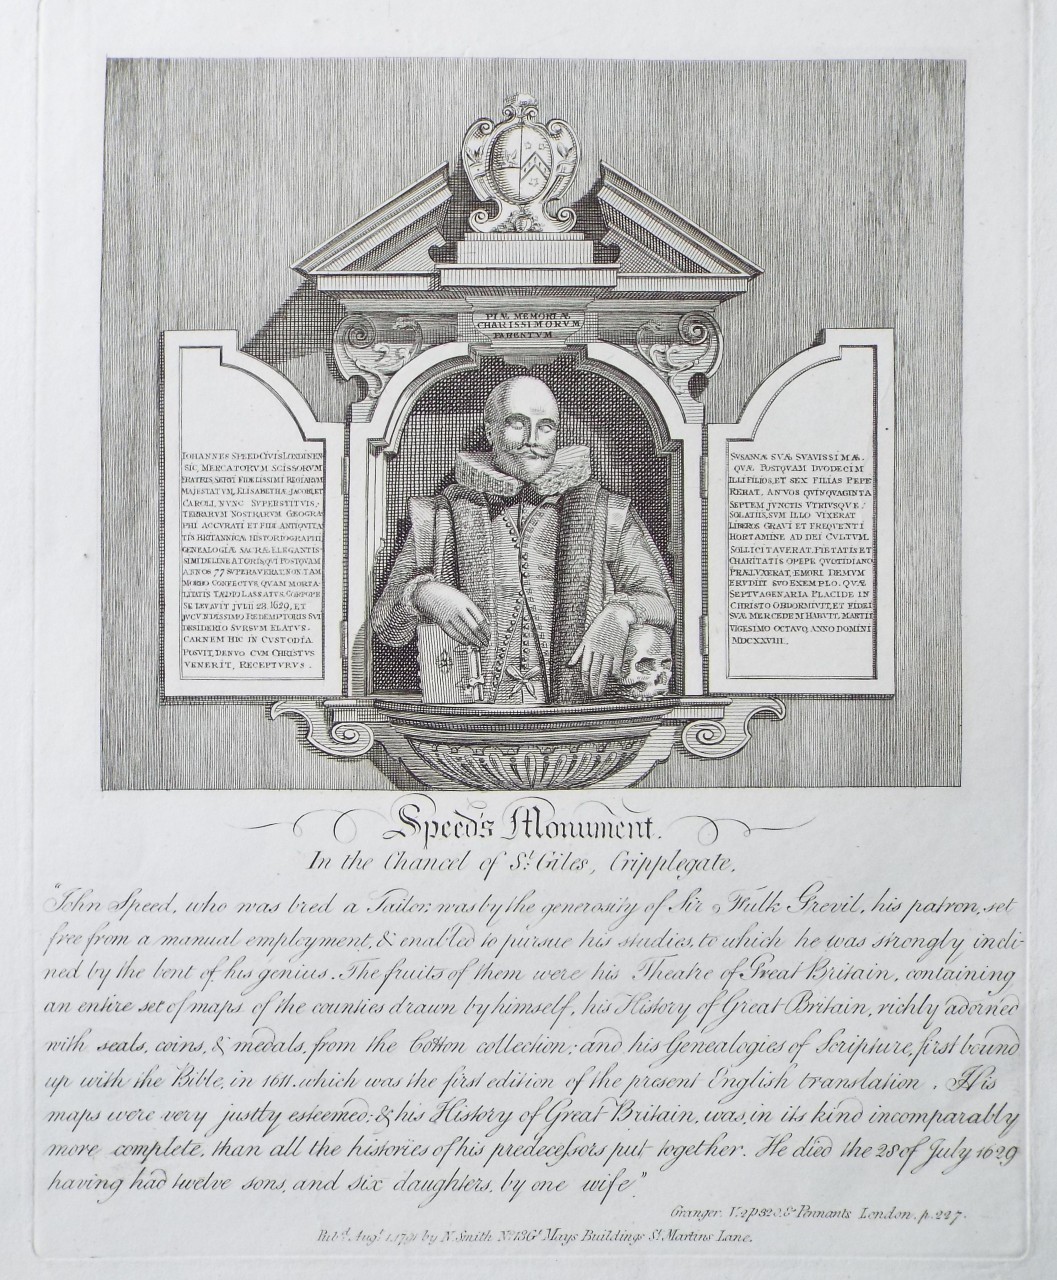 PIÆ MEMORIÆ
CHARISSIMORVM
PARENTVM
IOHANNES SPEED CIVIS LONDINEN
SIC, MERCATORVM SCISSORVM
FRATRIS, SERVI FIDELISSIMI REGIARVM
MAJESTATVM, ELISABETHÆ, JACOBI, ET
CAROLI, NVNC SVPERSTITVIS,
TERRARVM NOSTRARVM GEOGRA
PHI ACCVRATI ET FIDI ANTIQVITA
TIS BRITANNICÆ HISTORIOGRAPHI
GENEALOGIÆ SACRÆ ELEGANTIS
SIMI DELINEATORIS, QVI POSTQVAM
ANNOS 77 SVPERAVERAT, NON TAM
MORBO CONFECTVS, QVAM MORTA-
LITATIS TÆDIO LASSATVS, CORPORE
SE LEVAVIT JVLII 28. 1629, ET
JVCVNDISSIMO REDEMPTORIS SVI
DESIDERIO SVRSVM ELATVS,
CARNEM HIC IN CVSTODIA
POSVIT, DENVO CVM CHRISTVS
VENERIT, RECEPTVRVS.
SVSANNÆ SVÆ SVAVISSIMÆ,
QVÆ POSTQVAM DVODECIM
ILLI FILIOS, ET SEX FILIAS PEPE
RERAT, ANVOS QVINQVAGINTA
SEPTEM JVNCTIS VTRIVSQVE,
SOLATIIS, CVM ILLO VIXERAT
LIBEROS GRAVI ET FREQVENTI
HORTAMINE AD DEI CVLTVM
SOLLICITAVERAT, PIETATIS ET
CHARITATIS OPEPE QVOTIDIANO
PRÆLVXERAT, EMORI DEMVM
ERVDIIT SVO EXEMPLO. QVÆ
SEPTVAGENARIA PLACIDE IN
CHRISTO OBDORMIVIT, ET FIDEI
SVÆ MERCEDEM HABVIT, MARTII
VIGESIMO OCTAVO, ANNO DOMINI
MDCXXVIII.
Speed's Monument.
In the Chancel of St. Giles, Cripplegate.
"John Speed, who was bred a Tailor, was by the generosity of Sir Fulk Grevil, his patron, set
free from a manual employment, & enabled to pursue his studies, to which he was strongly incli-
ned by the bent of his genius. The fruits of them were his Theatre of Great Britain, containing
an entire set of maps of the counties drawn by himself, his History of Great Britain, richly adorned
with seals, coins, & medals, from the Cotton collection; and his Genealogies of Scripture, first bound
up with the Bible, in 1611. which was the first edition of the present English translation. His
maps were very justly esteemed; & his History of Great Britain, was, in its kind incomparably
more complete, than all the histories of his predecessors put together. He died the 28 of July 1629
having had twelve sons, and six daughters, by one wife".
Granger. V.2 p 320. & Pennants London. p. 227.
Pubd. Augt. 1. 1791 by N. Smith No. 18 Gt. Mays Buildings St. Martins Lane.